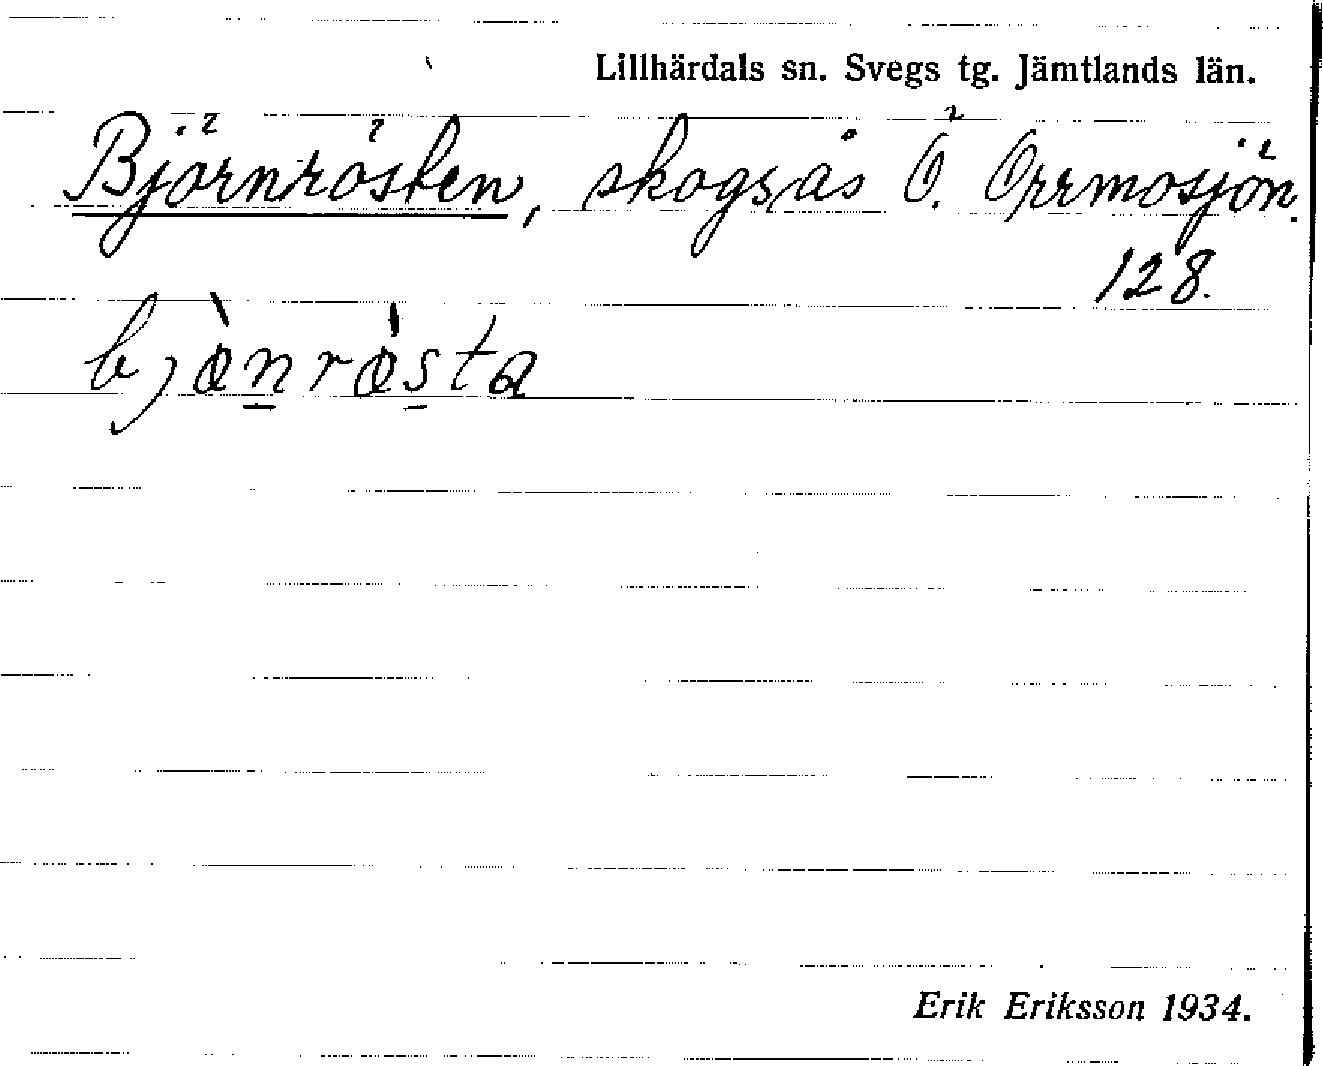 Lillhärdals sn. Svegs tg. Jämtlands län.
Björnrösten, skogsås Ö. Orrmosjön.
128.
bjö̀nrö̀sta
Erik Eriksson 1934.